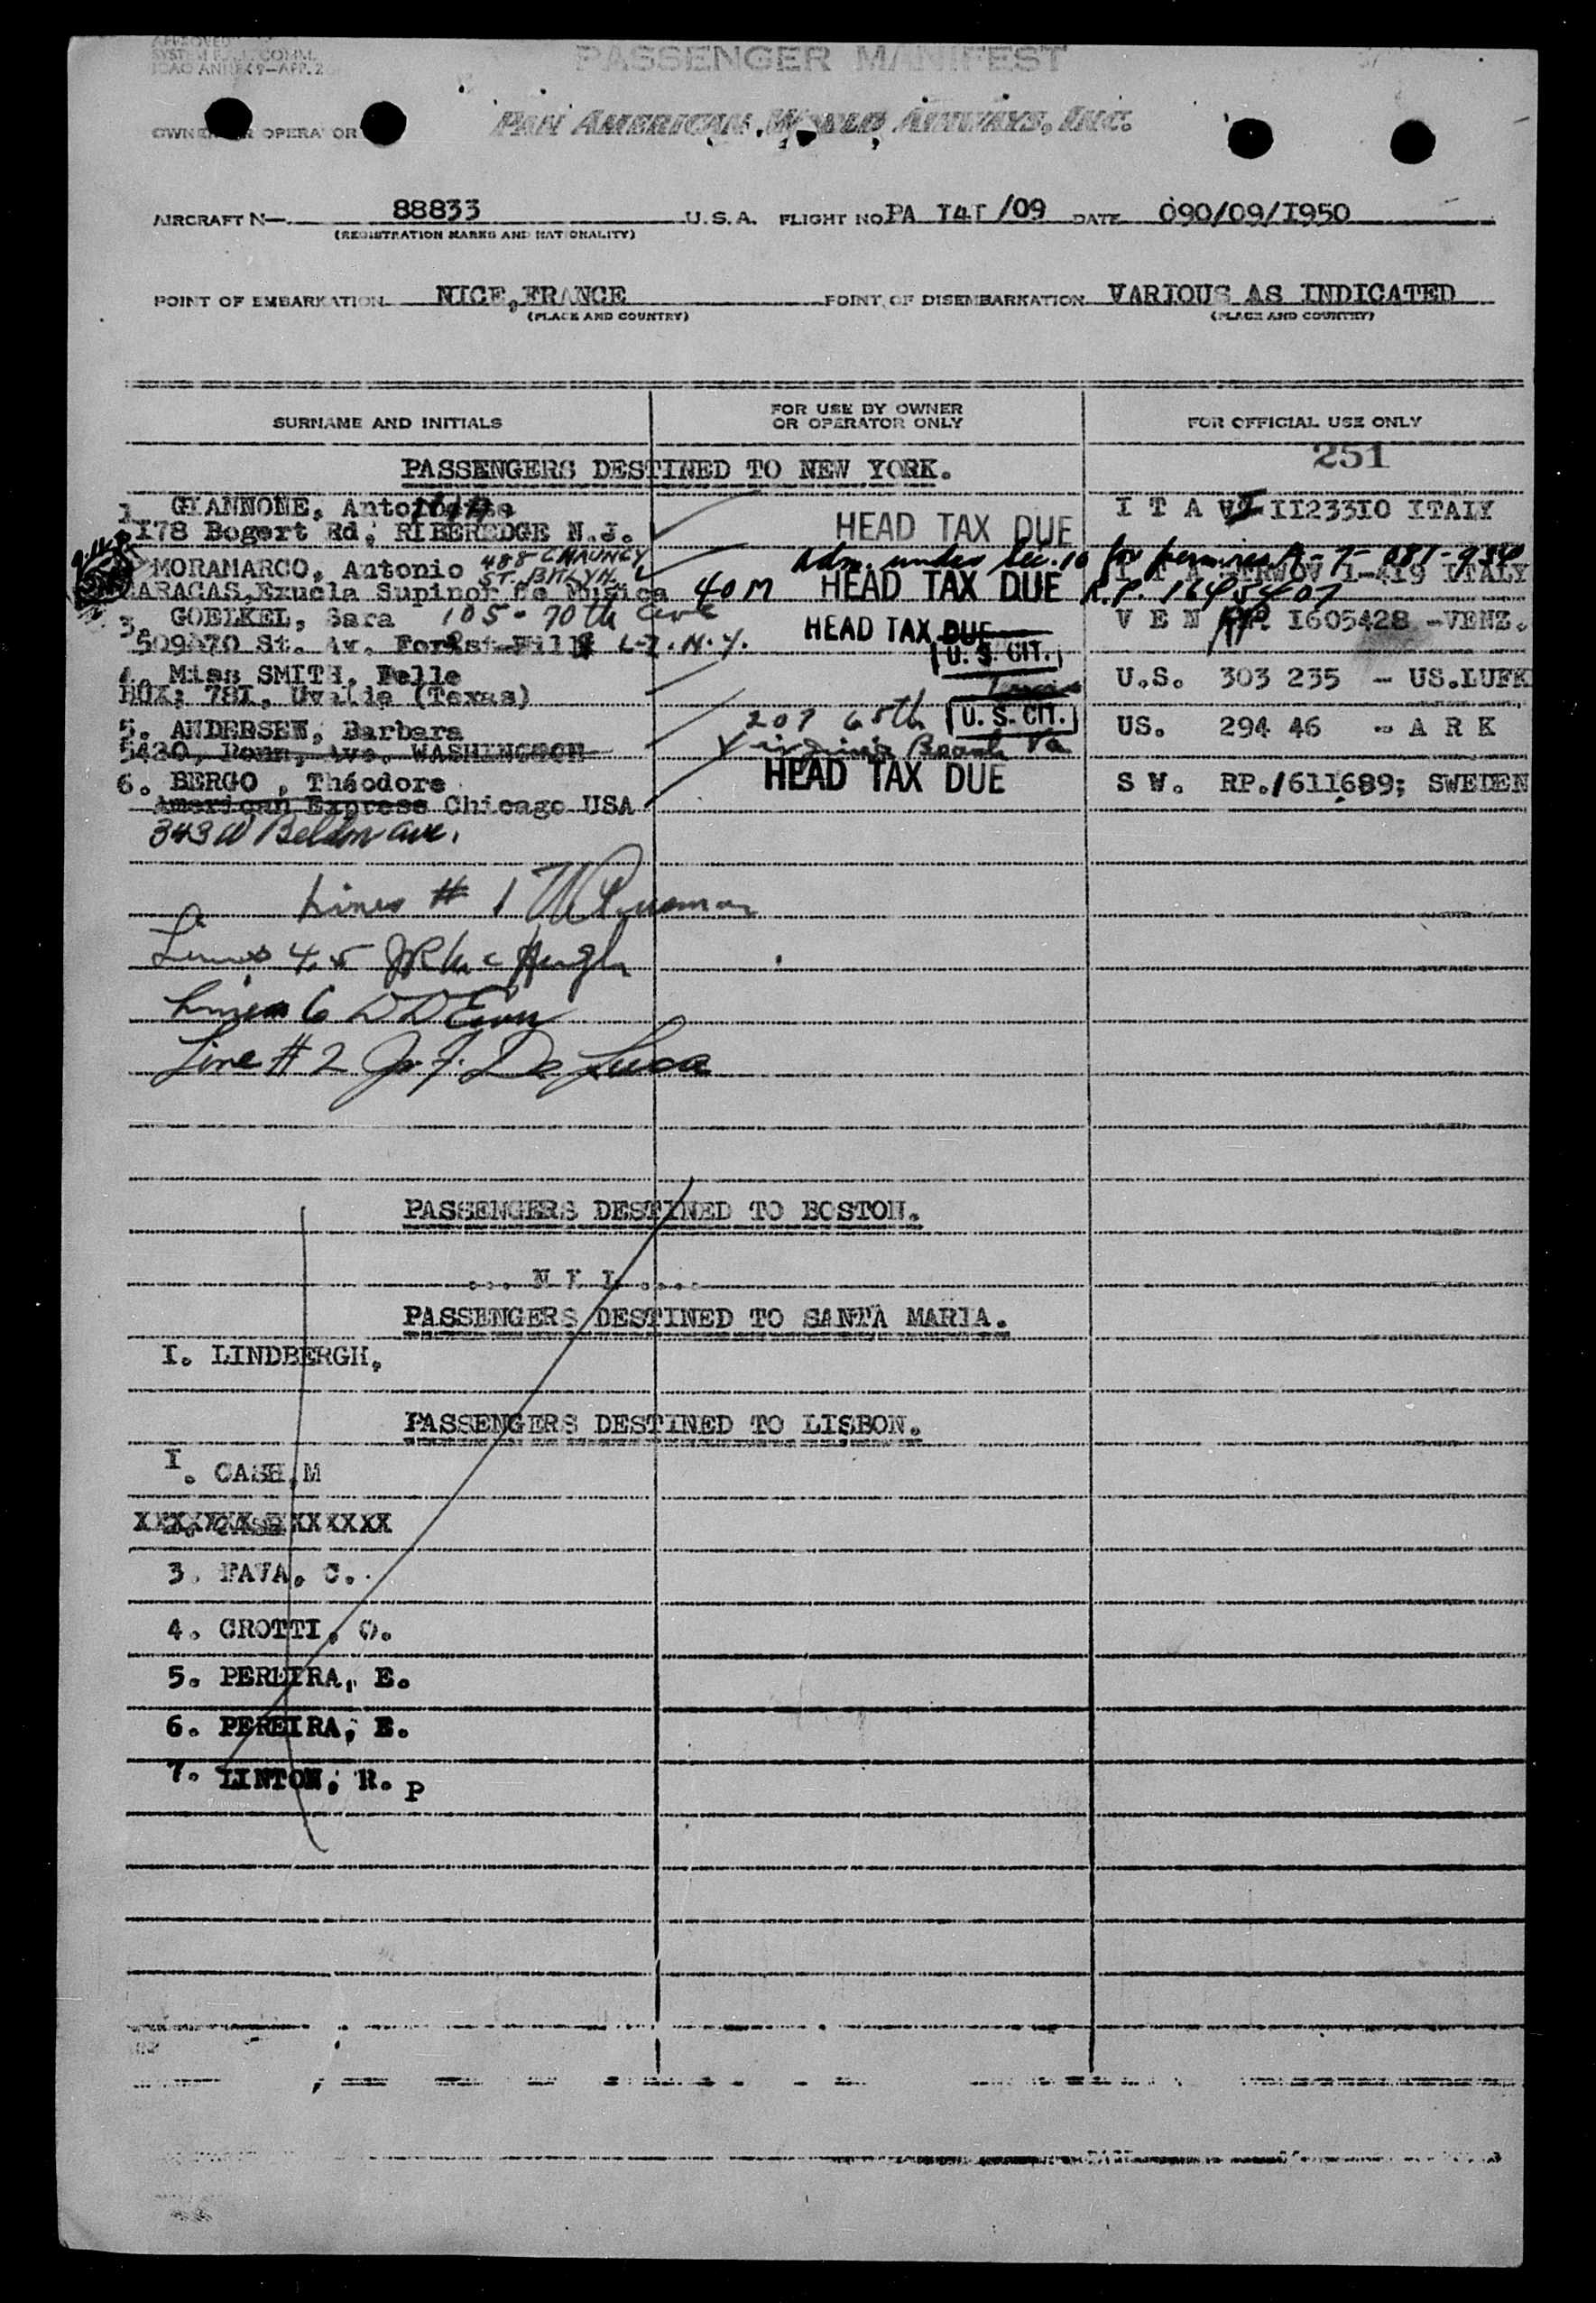 APPROVED
SYSTEM COMM.
ICAO ANNEX 9-APP. 2
PASSENGER MANIFEST
OWNER OR OPERATOR
PAN AMERICAN WORLD AIRWAYS, INC.
AIRCRAFT N— 88833 U.S.A. FLIGHT NO PA I4I /09 DATE 090/09/I950
(REGISTRATION MARKS AND NATIONALITY)
POINT OF EMBARKATION NICE, FRANCE POINT OF DISEMBARKATION VARIOUS AS INDICATED
(PLACE AND COUNTRY) (PLACE AND COUNTRY)
SURNAME AND INITIALS FOR USE BY OWNER OR OPERATOR ONLY FOR OFFICIAL USE ONLY
251
PASSENGERS DESTINED TO NEW YORK.
1 GIANNONE, HEAD TAX DUE I T A II233IO ITALY
I78 Bogert Rd, RIBEREDGE N.J.
Adm. under Sec. 10 for
MORAMARCO, Antonio 488 CHAUNCY ST. BKLYN. HEAD TAX DUE 1-419 ITALY
CARACAS, Supinor de Musica 40 M R.P.
3. GOELKEL, Sara 105-70th ave HEAD TAX DUE V E N RP. I605428 -VENZ.
St. Av. Forest Hills L.I. N.Y. U. S. CIT.
4. Miss SMITH, Belle U.S. 303 235 - US.LUFK
BOX; 78I, Uvalde (Texas)
5. ANDERSEN, Barbara 207 65th U. S. CIT. US. 294 46 - A R K
5430, Ave. WASHINGTON Virginia Beach Va
6. BERGO , Théodore HEAD TAX DUE S W. RP./611689; SWEDEN
American Express Chicago USA
343 W Belden ave.
Lines # 1
Lines 4, 5 JR McHugh
Lines 6
Line # 2 J. F. De Luca
PASSENGERS DESTINED TO BOSTON.
... N I L ....
PASSENGERS DESTINED TO SANTA MARIA.
I. LINDBERGH,
PASSENGERS DESTINED TO LISBON.
I. CASH, M
3. PAVA, C.
4. GROTTI, O.
5. PEREIRA, E.
6. PEREIRA, E.
7. LINTON, R. P